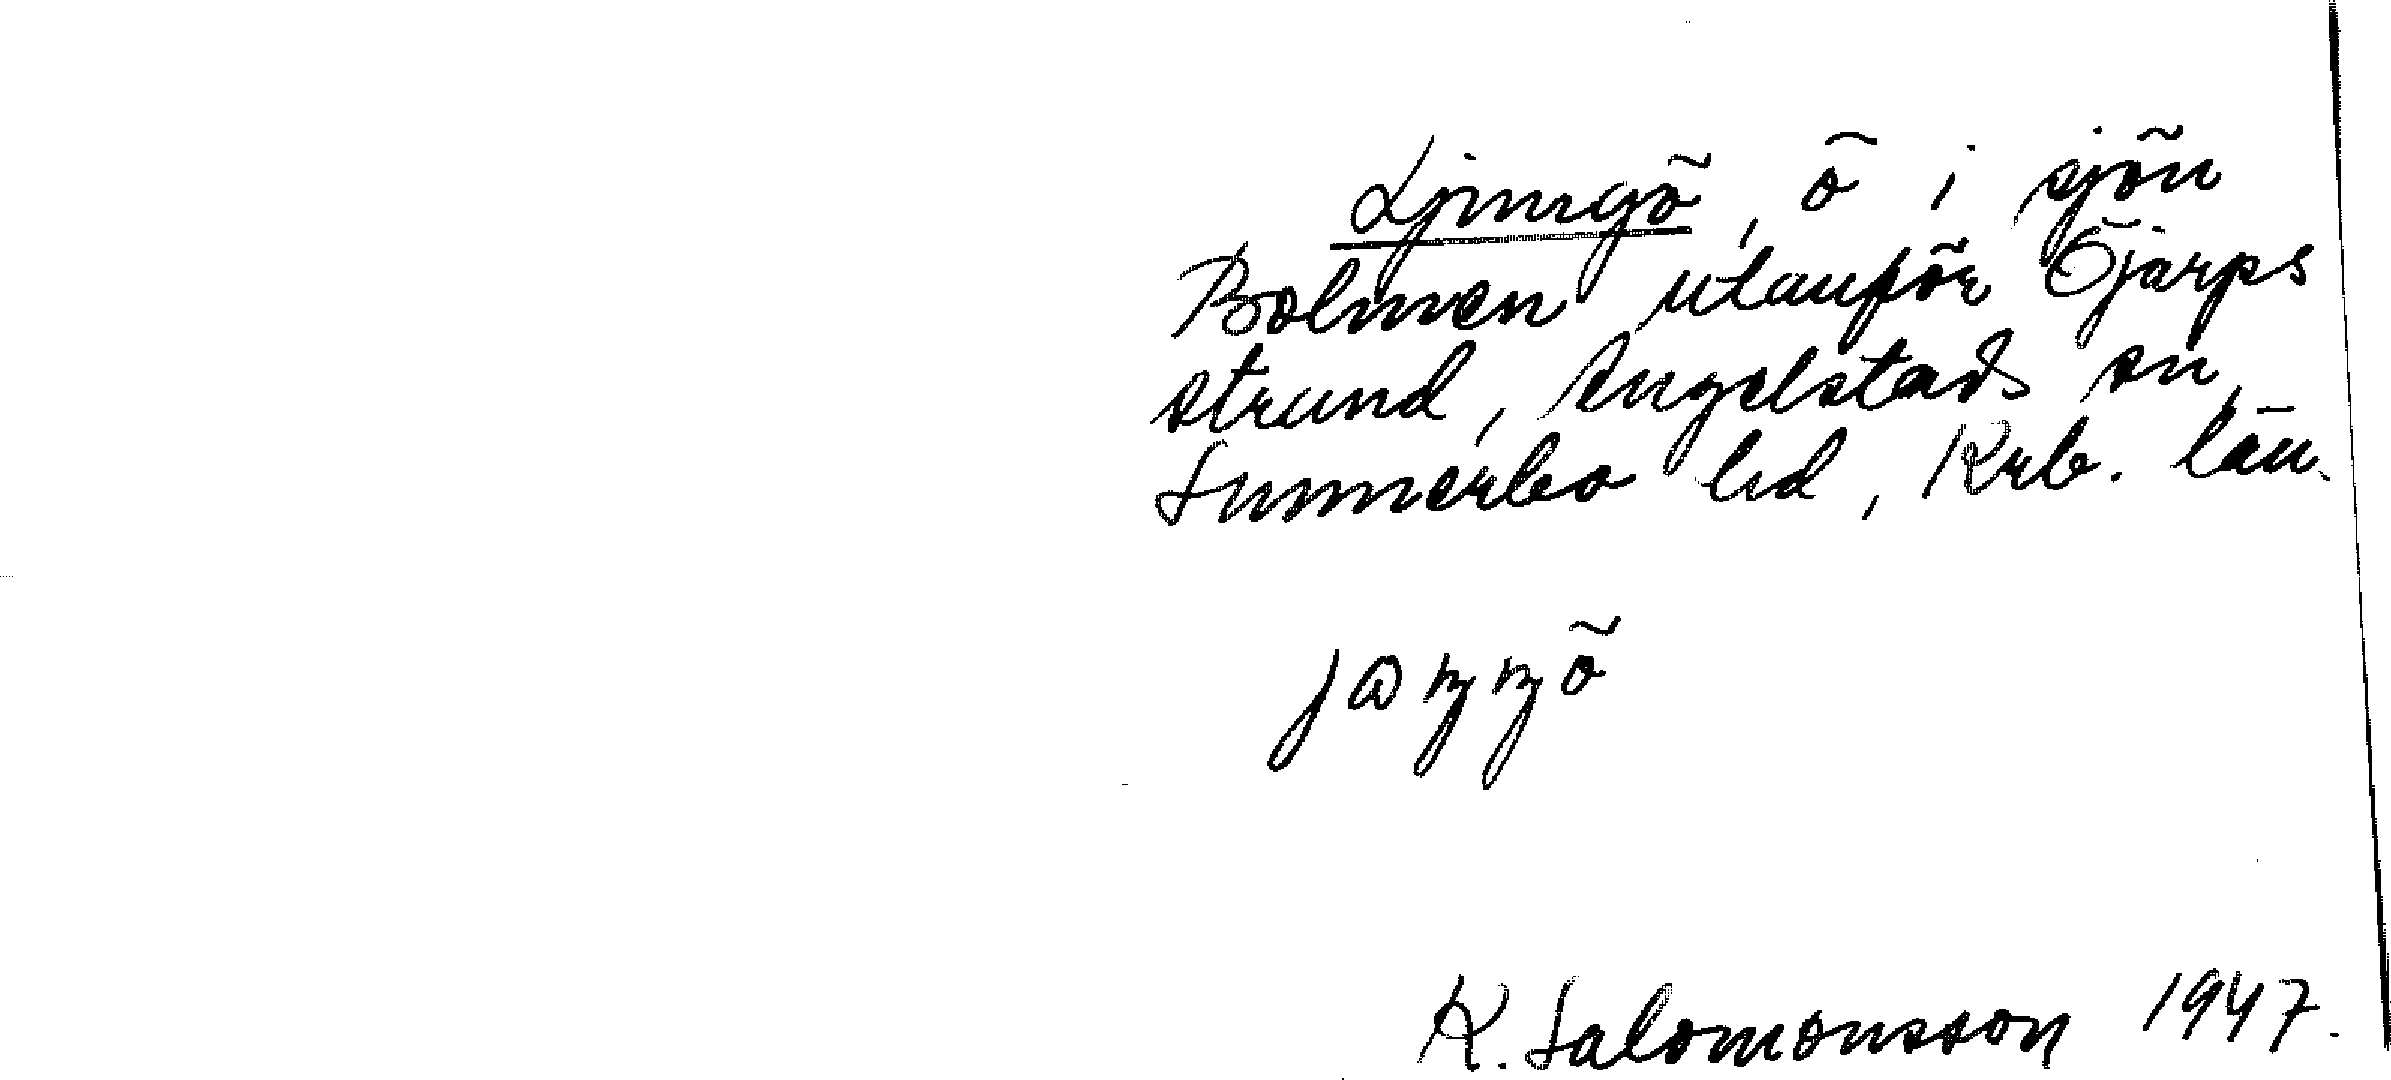 Ljungö, ö i sjön
Bolmen utanför Öjarps
strand, Angelstads sn,
Sunnerbo hd, Krb. län.
jɷŋŋö
K. Salomonsson 1947.